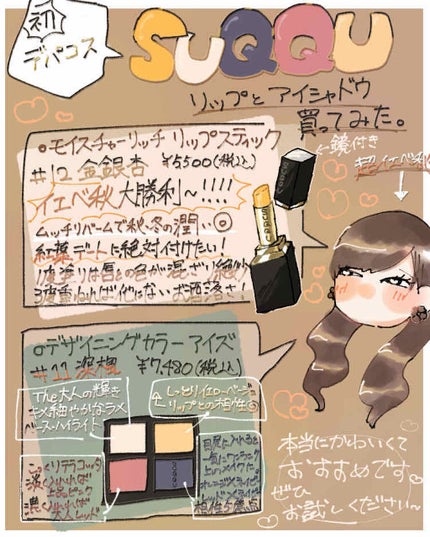 初
デパコス
SUQQU
リップと アイシャドウ
買ってみた。
←鏡付き
超イエベ秋
。モイスチャーリッチ リップスティック
#12 金銀杏 ¥5500(税込)
イエベ秋 大勝利〜!!!!
ムッチリバームで秋・冬の潤い◎
紅葉デートに絶対付けたい!
1度塗りは唇との色が混ざり絶妙
3度重ねれば他にないお洒落さ!
。デザイニングカラー アイズ
#11 ¥7,480(税込)
The大人の輝き
キメ細やかなラメ
ベースハイライト
しっとりイエローベージュ
リップとの相性◎
こっくりテラコッタ
淡く入れれば
上品ピンク
濃く入れれば
大人レッド
目尻に入れると
一気にワンランク
上のメイクに。
相性
SUQQU
本当にかわいくて
おすすめです
ぜひ
お試しください〜